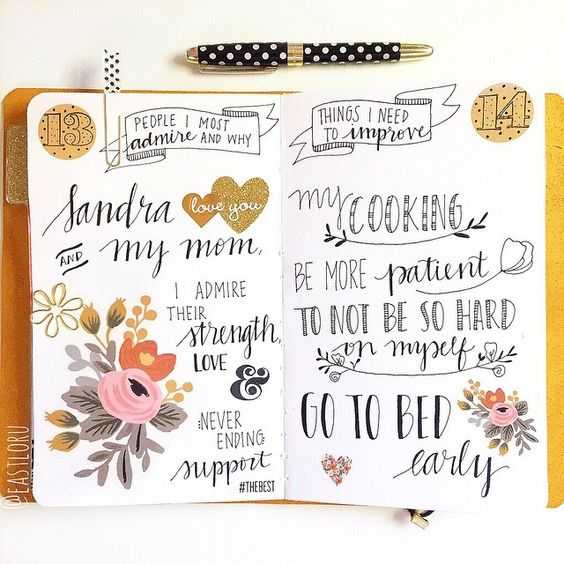 13
PEOPLE I MOST
admire AND WHY
Sandra
love you
AND my mom,
I ADMIRE
THEIR
strength,
LOVE &
NEVER
ENDING
support
#THEBEST
THINGS I NEED
TO improve
14
my COOKING
BE MORE patient
TO NOT BE SO HARD
on myself
GO TO BED
early
@EASTLORU